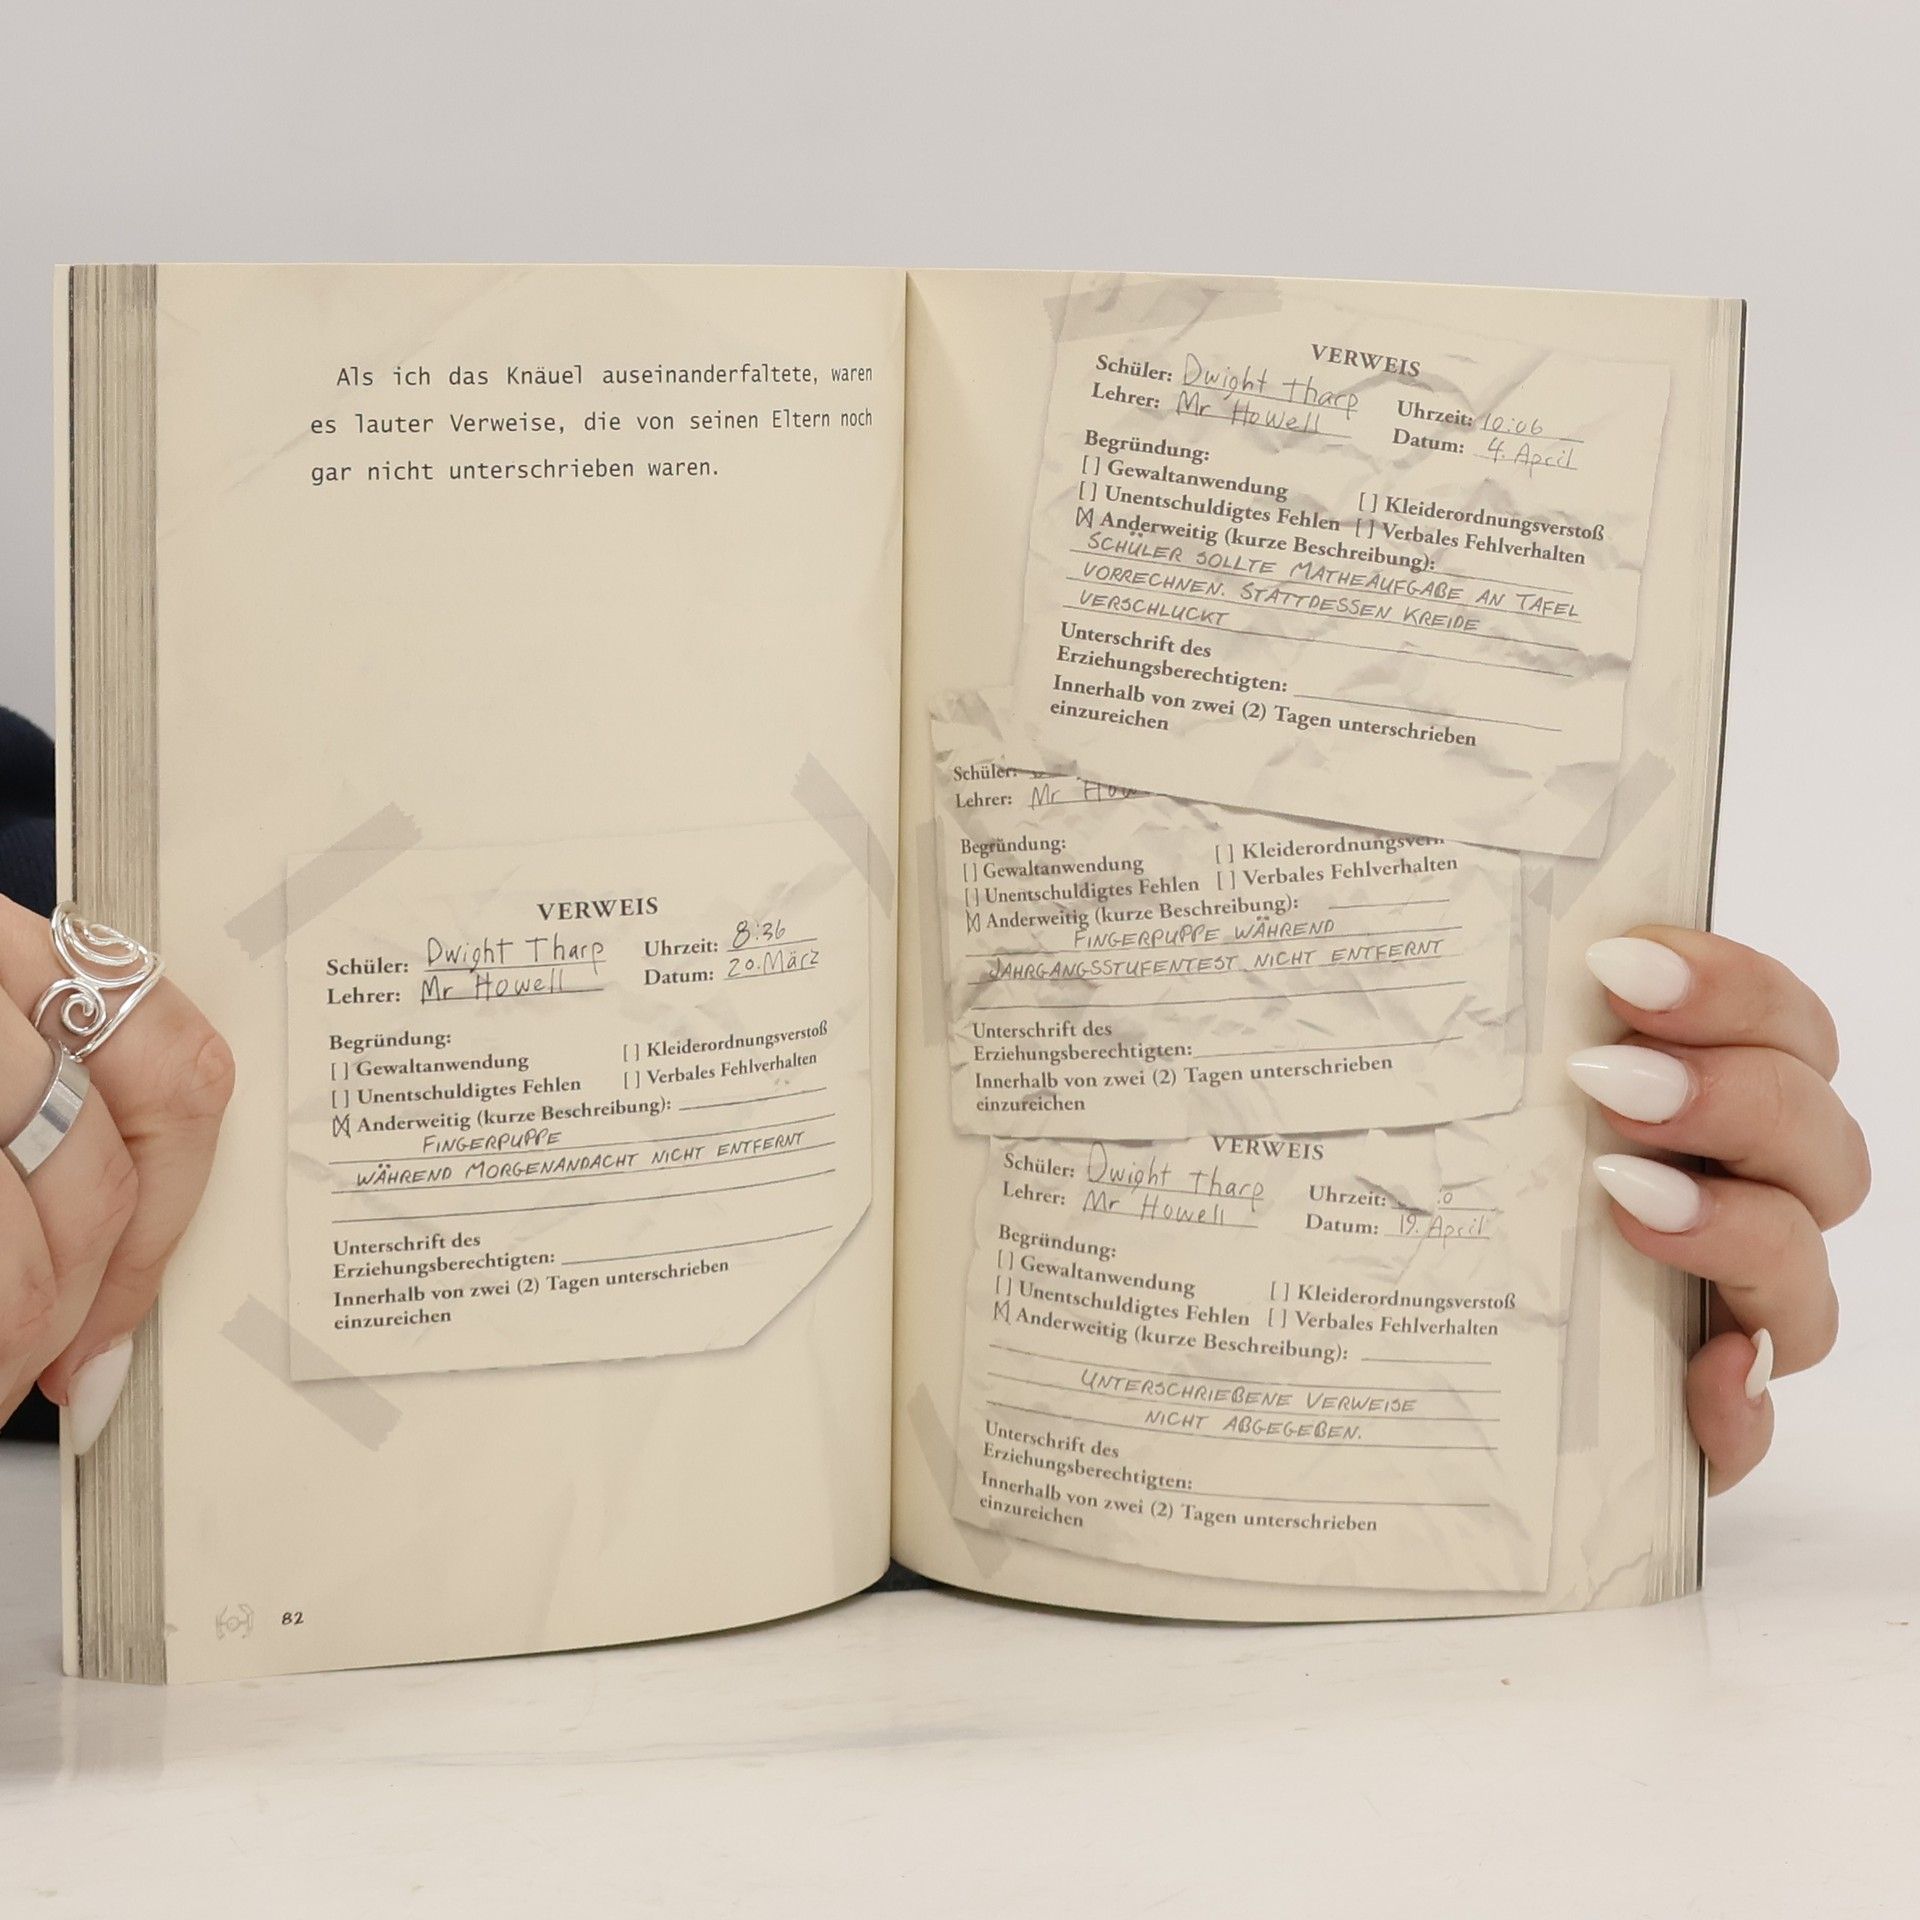 Als ich das Knäuel auseinanderfaltete, waren
es lauter Verweise, die von seinen Eltern noch
gar nicht unterschrieben waren.
VERWEIS
Schüler: Dwight Tharp Uhrzeit: 8:36
Lehrer: Mr Howell Datum: 20. März
Begründung:
[ ] Gewaltanwendung [ ] Kleiderordnungsverstoß
[ ] Unentschuldigtes Fehlen [ ] Verbales Fehlverhalten
[X] Anderweitig (kurze Beschreibung):
FINGERPUPPE
WÄHREND MORGENANDACHT NICHT ENTFERNT
Unterschrift des
Erziehungsberechtigten:
Innerhalb von zwei (2) Tagen unterschrieben
einzureichen
82
VERWEIS
Schüler: Dwight Tharp Uhrzeit: 10:06
Lehrer: Mr Howell Datum: 4. April
Begründung:
[ ] Gewaltanwendung [ ] Kleiderordnungsverstoß
[ ] Unentschuldigtes Fehlen [ ] Verbales Fehlverhalten
[X] Anderweitig (kurze Beschreibung):
SCHÜLER SOLLTE MATHEAUFGABE AN TAFEL
VORRECHNEN. STATTDESSEN KREIDE
VERSCHLUCKT
Unterschrift des
Erziehungsberechtigten:
Innerhalb von zwei (2) Tagen unterschrieben
einzureichen
Schüler:
Lehrer: Mr How
Begründung:
[ ] Gewaltanwendung [ ] Kleiderordnungsver
[ ] Unentschuldigtes Fehlen [ ] Verbales Fehlverhalten
[X] Anderweitig (kurze Beschreibung):
FINGERPUPPE WÄHREND
JAHRGANGSSTUFENTEST NICHT ENTFERNT
Unterschrift des
Erziehungsberechtigten:
Innerhalb von zwei (2) Tagen unterschrieben
einzureichen
VERWEIS
Schüler: Dwight Tharp Uhrzeit: :0
Lehrer: Mr Howell Datum: 19. April
Begründung:
[ ] Gewaltanwendung [ ] Kleiderordnungsverstoß
[ ] Unentschuldigtes Fehlen [ ] Verbales Fehlverhalten
[X] Anderweitig (kurze Beschreibung):
UNTERSCHRIEBENE VERWEISE
NICHT ABGEGEBEN.
Unterschrift des
Erziehungsberechtigten:
Innerhalb von zwei (2) Tagen unterschrieben
einzureichen